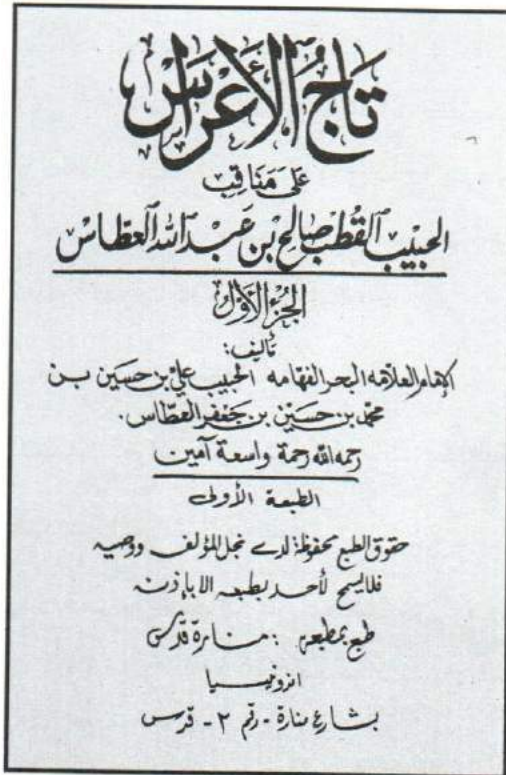 تَاجُ الأَعْرَاسِ
عَلَى مَنَاقِبِ
الحبيب القُطب صَالح بن عَبد الله العطّاسْ
الجُزءُ الأوّل
تأليف:
الإمام العلامه البحر الفهامه الحبيب علي بن حسين بن
محمّد بن حسين بن جعفر العطّاس.
رحمه الله رحمة واسعة آمين
الطبعة الأولى
حقوق الطبع محفوظة لدى نجل المؤلف ووصيه
فلا يسمح لأحد بطبعه الا باذنه
طبع بمطبعة : منارة قدس
اندونيسيا
بشارع منارة - رقم ٢ - قدس